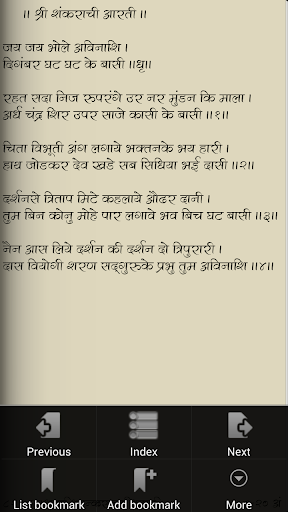 ॥ श्री शंकराची आरती ॥
जय जय भोले अविनाशि ।
दिगंबर घट घट के बासी ॥धृ॥
रहत सदा निज रुपरंगे उर नर मुंडन कि माला ।
अर्ध चंद्र शिर उपर साजे कासी के बासी ॥१॥
चिता विभूती अंग लगाये भक्तनके भय हारी ।
हाथ जोडकर देव खडे सब सिधिया भई दासी ॥२॥
दर्शनसे त्रिताप मिटे कहलाये औढर दानी ।
तुम बिन कोनु मोहे पार लगावे भव बिच घट बासी ॥३॥
नैन आस लिये दर्शन की दर्शन दो त्रिपुरारी ।
दास वियोगी शरण सद्गुरुके प्रभु तुम अविनाशि ॥४॥
Previous
Index
Next
List bookmark
Add bookmark
More